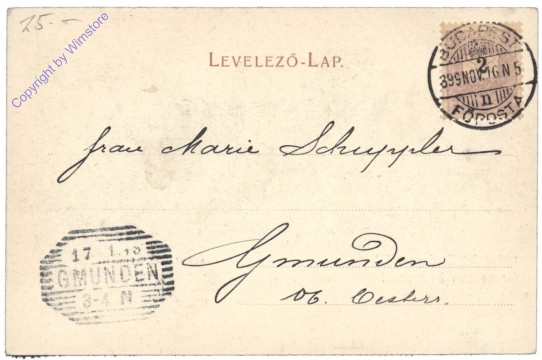 25.-
Copyright by Wimstore
LEVELEZŐ-LAP.
BUDAPEST
2
899 NOV. 16 N 5
n
FŐPOSTA
Frau Marie Schuppler
Gmunden
Ob. Oesterr.
17
GMUNDEN
3-4 N